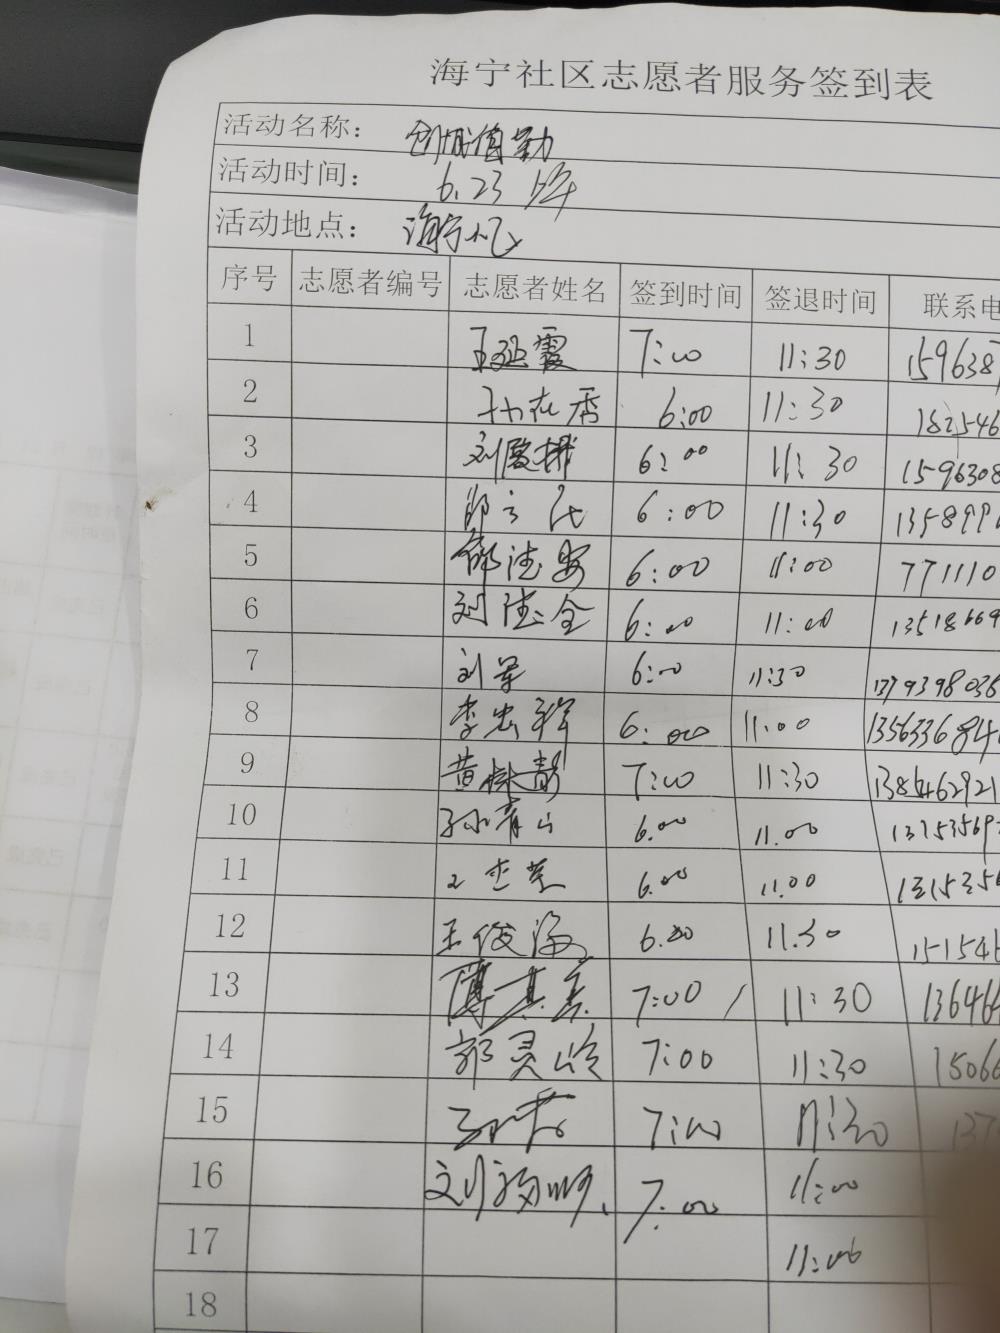 海宁社区志愿者服务签到表
活动名称: 创城值勤
活动时间: 6.23 上午
活动地点: 海宁
序号 志愿者编号 志愿者姓名 签到时间 签退时间 联系电
1 王延霞 7:00 11:30 1596387
2 孙在香 6:00 11:30 182546
3 刘 6:00 11:30 1596308
4 6:00 11:30 135899
5 德安 6:00 11:00 771110
6 刘德全 6:00 11:00 13518669
7 刘军 6:00 11:30 1379398036
8 李忠祥 6:00 11:00 135633684
9 黄 7:00 11:30 1385462921
10 孙青山 6.00 11.00 1375356
11 6.00 11.00 1315356
12 王俊海 6.00 11.30 151546
13 薄其 7:00 11:30 136466
14 郭灵岭 7:00 11:30 15066
15 7:00 11:30 137
16 刘 7:00 11:00
17 11:00
18